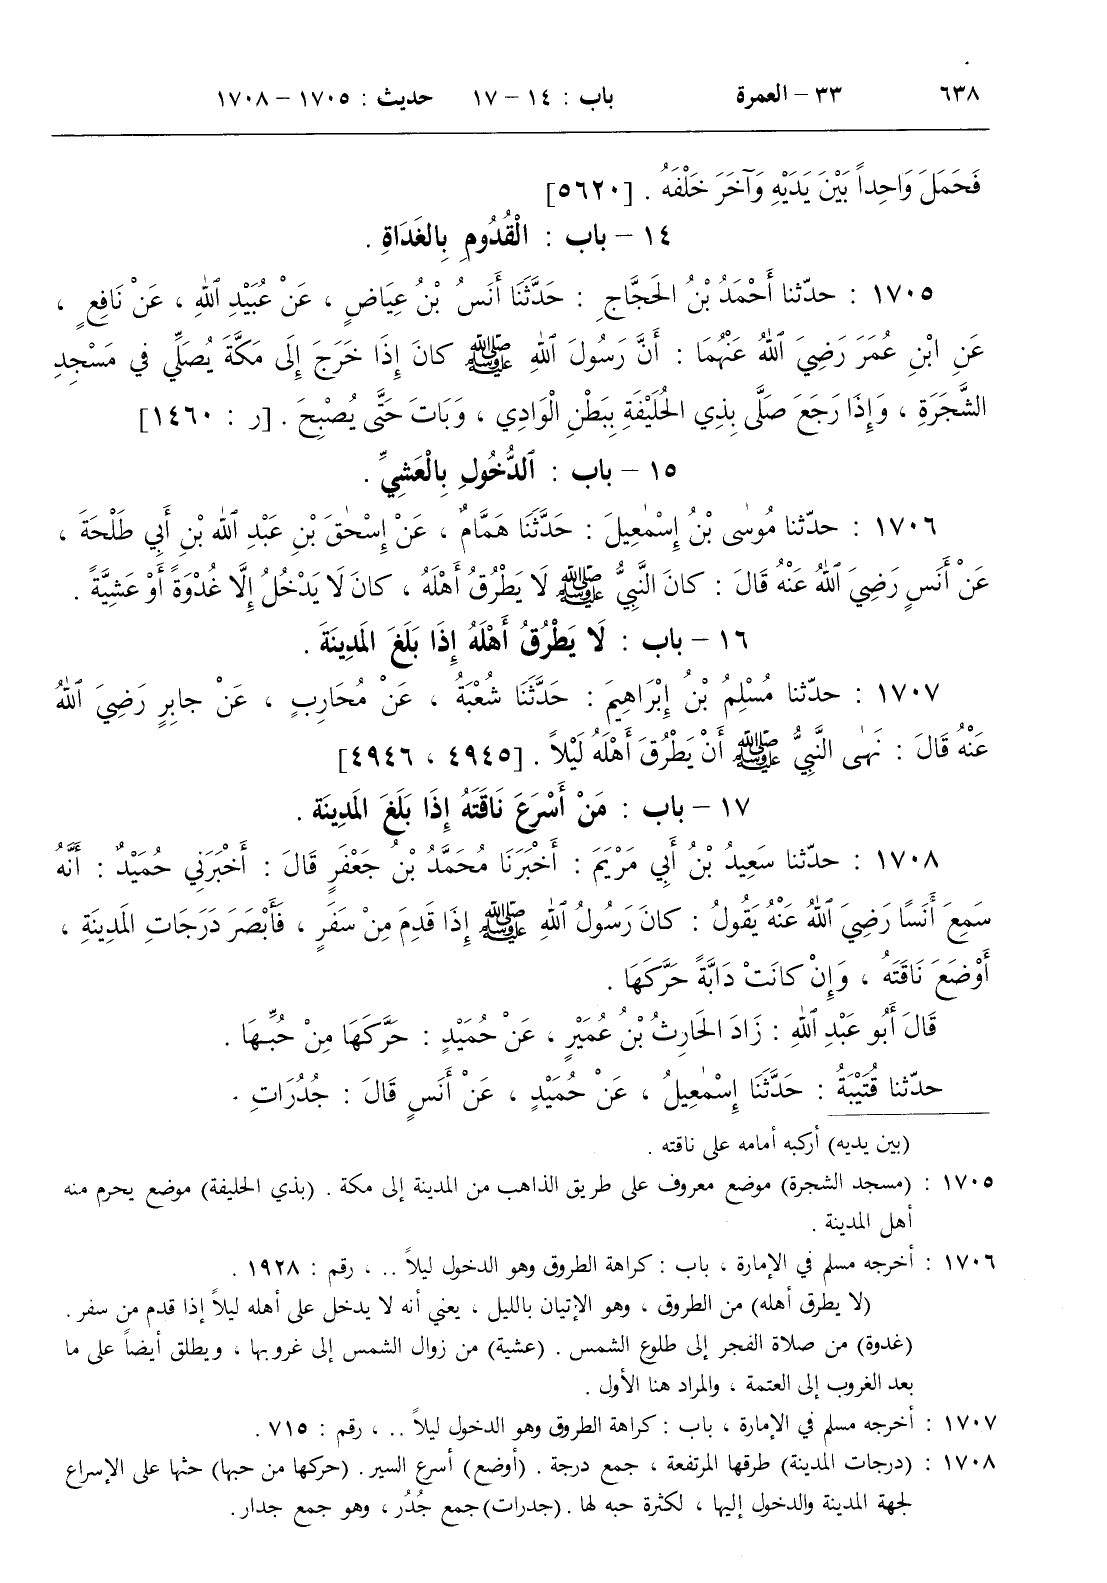 ٦٣٨ ٣٣ – العمرة باب : ١٤ – ١٧ حديث : ١٧٠٥ – ١٧٠٨
فَحَمَلَ وَاحِداً بَيْنَ يَدَيْهِ وَآخَرَ خَلْفَهُ . [٥٦٢٠]
١٤ – باب : الْقُدُومِ بِالْغَدَاةِ .
١٧٠٥ : حدّثنا أَحْمَدُ بْنُ الحَجَّاجِ : حَدَّثَنَا أَنَسُ بْنُ عِيَاضٍ ، عَنْ عُبَيْدِ اللهِ ، عَنْ نَافِعٍ ،
عَنِ ابْنِ عُمَرَ رَضِيَ اللهُ عَنْهُمَا : أَنَّ رَسُولَ اللهِ ﷺ كانَ إِذَا خَرَجَ إِلَى مَكَّةَ يُصَلِّي في مَسْجِدِ
الشَّجَرَةِ ، وَإِذَا رَجَعَ صَلَّى بِذِي الحُلَيْفَةِ بِبَطْنِ الْوَادِي ، وَبَاتَ حَتَّى يُصْبِحَ . [ر : ١٤٦٠]
١٥ – باب : الدُّخُولِ بِالْعَشِيِّ .
١٧٠٦ : حدّثنا مُوسٰى بْنُ إِسْمٰعِيلَ : حَدَّثَنَا هَمَّامٌ ، عَنْ إِسْحٰقَ بْنِ عَبْدِ اللهِ بْنِ أَبِي طَلْحَةَ ،
عَنْ أَنَسٍ رَضِيَ اللهُ عَنْهُ قَالَ : كانَ النَّبِيُّ ﷺ لَا يَطْرُقُ أَهْلَهُ ، كانَ لَا يَدْخُلُ إِلَّا غُدْوَةً أَوْ عَشِيَّةً .
١٦ – باب : لَا يَطْرُقُ أَهْلَهُ إِذَا بَلَغَ المَدِينَةَ .
١٧٠٧ : حدّثنا مُسْلِمُ بْنُ إِبْرَاهِيمَ : حَدَّثَنَا شُعْبَةُ ، عَنْ مُحَارِبٍ ، عَنْ جابِرٍ رَضِيَ اللهُ
عَنْهُ قَالَ : نَهٰى النَّبِيُّ ﷺ أَنْ يَطْرُقَ أَهْلَهُ لَيْلاً . [٤٩٤٥ ، ٤٩٤٦]
١٧ – باب : مَنْ أَسْرَعَ نَاقَتَهُ إِذَا بَلَغَ المَدِينَة .
١٧٠٨ : حدّثنا سَعِيدُ بْنُ أَبِي مَرْيَمَ : أَخْبَرَنَا مُحَمَّدُ بْنُ جَعْفَرٍ قَالَ : أَخْبَرَنِي حُمَيْدٌ : أَنَّهُ
سَمِعَ أَنَسًا رَضِيَ اللهُ عَنْهُ يَقُولُ : كانَ رَسُولُ اللهِ ﷺ إِذَا قَدِمَ مِنْ سَفَرٍ ، فَأَبْصَرَ دَرَجَاتِ المَدِينَةِ ،
أَوْضَعَ نَاقَتَهُ ، وَإِنْ كانَتْ دَابَّةً حَرَّكَهَا .
قَالَ أَبُو عَبْدِ اللهِ : زَادَ الحَارِثُ بْنُ عُمَيْرٍ ، عَنْ حُمَيْدٍ : حَرَّكَهَا مِنْ حُبِّهَا .
حدّثنا قُتَيْبَةُ : حَدَّثَنَا إِسْمٰعِيلُ ، عَنْ حُمَيْدٍ ، عَنْ أَنَسٍ قَالَ : جُدُرَاتِ .
(بين يديه) أركبه أمامه على ناقته .
١٧٠٥ : (مسجد الشجرة) موضع معروف على طريق الذاهب من المدينة إلى مكة . (بذي الحليفة) موضع يحرم منه
أهل المدينة .
١٧٠٦ : أخرجه مسلم في الإمارة ، باب : كراهة الطروق وهو الدخول ليلاً .. ، رقم : ١٩٢٨ .
(لا يطرق أهله) من الطروق ، وهو الإتيان بالليل ، يعني أنه لا يدخل على أهله ليلاً إذا قدم من سفر .
(غدوة) من صلاة الفجر إلى طلوع الشمس . (عشية) من زوال الشمس إلى غروبها ، ويطلق أيضاً على ما
بعد الغروب إلى العتمة ، والمراد هنا الأول .
١٧٠٧ : أخرجه مسلم في الإمارة ، باب : كراهة الطروق وهو الدخول ليلاً .. ، رقم : ٧١٥ .
١٧٠٨ : (درجات المدينة) طرقها المرتفعة ، جمع درجة . (أوضع) أسرع السير . (حركها من حبها) حثها على الإسراع
لجهة المدينة والدخول إليها ، لكثرة حبه لها . (جدرات) جمع جُدُر ، وهو جمع جدار .